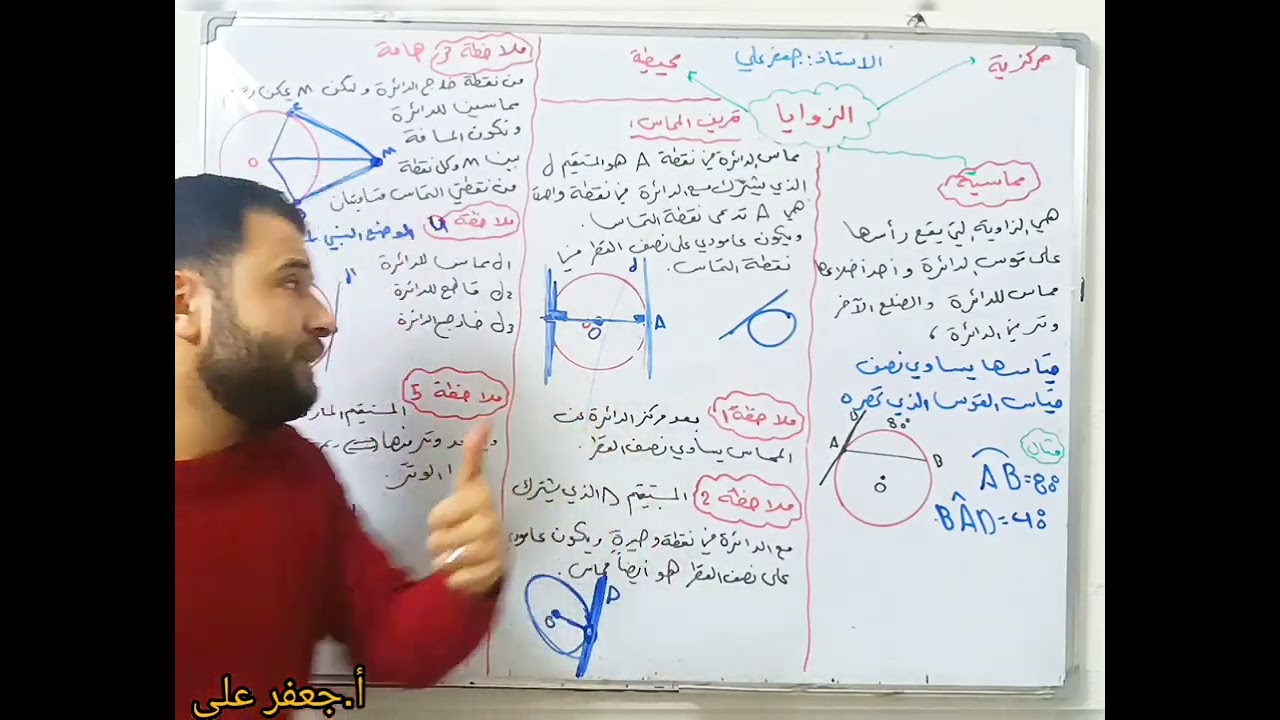 الاستاذ: جعفر علي
الزوايا
مركزية
محيطية
مماسية
هي الزاوية التي يقع رأسها
على قوس الدائرة و أحد أضلاعها
مماس للدائرة والضلع الآخر
وتر في الدائرة ،
قياسها يساوي نصف
قياس القوس الذي تحصره
مثال
AB=80
BAD=40
80
A
B
D
O
تعريف المماس :
مماس الدائرة في نقطة A هو المستقيم d
الذي يشترك مع الدائرة في نقطة واحدة
هي A تدعى نقطة التماس.
ويكون عامودي على نصف القطر في
نقطة التماس.
d
A
O
ملاحظة 1
بعد مركز الدائرة عن
المماس يساوي نصف القطر.
ملاحظة 2
المستقيم D الذي يشترك
مع الدائرة في نقطة وحيدة ويكون عامودي
على نصف القطر هو أيضاً مماس.
D
O
ملاحظة 3 هامة
من نقطة خارج الدائرة ولتكن M يمكن
مماسين للدائرة
وتكون المسافة
بين M وكل نقطة
من نقطتي التماس متساويتان
O
M
ملاحظة 4
الوضع النسبي
d1 مماس للدائرة
d2 قاطع للدائرة
d3 خارج الدائرة
ملاحظة 5
المستقيم المار
وتر منها
الوتر.
أ.جعفر علي